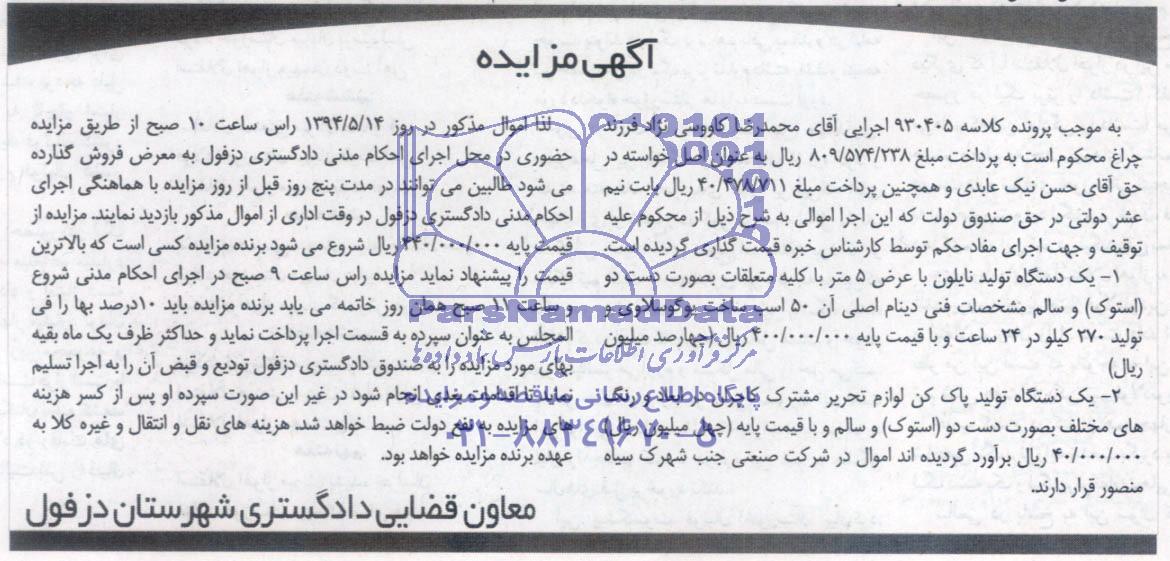 آگهی مزایده
به موجب پرونده کلاسه ۹۳۰۴۰۵ اجرایی آقای محمدرضا کاووسی نژاد فرزند
چراغ محکوم است به پرداخت مبلغ ۸۰۹/۵۷۴/۲۳۸ ریال به عنوان اصل خواسته در
حق آقای حسن نیک عابدی و همچنین پرداخت مبلغ ۴۰/۴۷۸/۷۱۱ ریال بابت نیم
عشر دولتی در حق صندوق دولت که این اجرا اموالی به شرح ذیل از محکوم علیه
توقیف و جهت اجرای مفاد حکم توسط کارشناس خبره قیمت گذاری گردیده است.
۱- یک دستگاه تولید نایلون با عرض ۵ متر با کلیه متعلقات بصورت دست دو
(استوک) و سالم مشخصات فنی دینام اصلی آن ۵۰ اسب ساخت یوگوسلاوی و
تولید ۲۷۰ کیلو در ۲۴ ساعت و با قیمت پایه ۴۰۰/۰۰۰/۰۰۰ ریال (چهارصد میلیون
ریال)
۲- یک دستگاه تولید پاک کن لوازم تحریر مشترک کاچیران در ابعاد و رنگ
های مختلف بصورت دست دو (استوک) و سالم و با قیمت پایه (چهل میلیون ریال)
۴۰/۰۰۰/۰۰۰ ریال برآورد گردیده اند اموال در شرکت صنعتی جنب شهرک سیاه
منصور قرار دارند.
لذا اموال مذکور در روز ۱۳۹۴/۵/۱۴ راس ساعت ۱۰ صبح از طریق مزایده
حضوری در محل اجرای احکام مدنی دادگستری دزفول به معرض فروش گذارده
می شود طالبین می توانند در مدت پنج روز قبل از روز مزایده با هماهنگی اجرای
احکام مدنی دادگستری دزفول در وقت اداری از اموال مذکور بازدید نمایند. مزایده از
قیمت پایه ۴۴۰/۰۰۰/۰۰۰ ریال شروع می شود برنده مزایده کسی است که بالاترین
قیمت را پیشنهاد نماید مزایده راس ساعت ۹ صبح در اجرای احکام مدنی شروع
و ساعت ۱۱ صبح همان روز خاتمه می یابد برنده مزایده باید ۱۰درصد بها را فی
المجلس به عنوان سپرده به قسمت اجرا پرداخت نماید و حداکثر ظرف یک ماه بقیه
بهای مورد مزایده را به صندوق دادگستری دزفول تودیع و قبض آن را به اجرا تسلیم
نماید تا اقدامات بعدی انجام شود در غیر این صورت سپرده او پس از کسر هزینه
های مزایده به نفع دولت ضبط خواهد شد. هزینه های نقل و انتقال و غیره کلا به
عهده برنده مزایده خواهد بود.
معاون قضایی دادگستری شهرستان دزفول
ParsNamadData
مرکز فرآوری اطلاعات پارس نماد داده ها
پایگاه اطلاع رسانی مناقصه و مزایده
۰۲۱-۸۸۳۴۹۶۷۰-۵